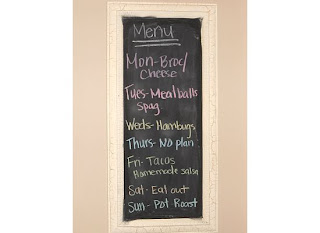 Menu
Mon-Broc/
Cheese
Tues-Meatballs
Spag
Weds-Hamburgs
Thurs-No plan
Fri-Tacos
Homemade salsa
Sat-Eat out
Sun-Pot Roast